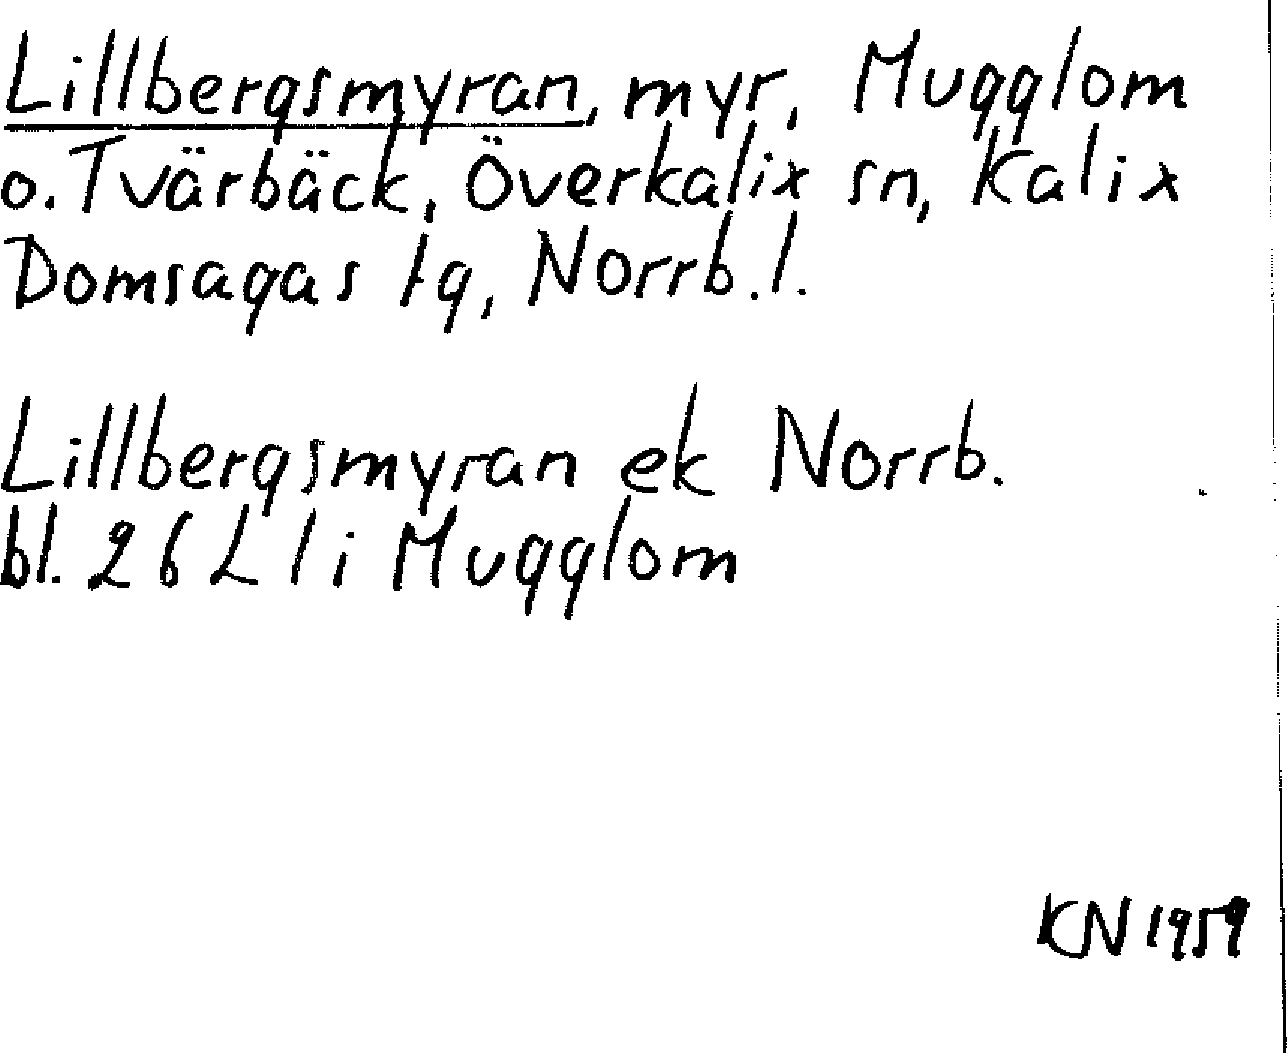 Lillbergsmyran, myr, Mugglom
o. Tvärbäck, Överkalix sn, Kalix
Domsagas tg, Norrb. l.
Lillbergsmyran ek Norrb.
bl. 26 L l i Mugglom
KN 1959